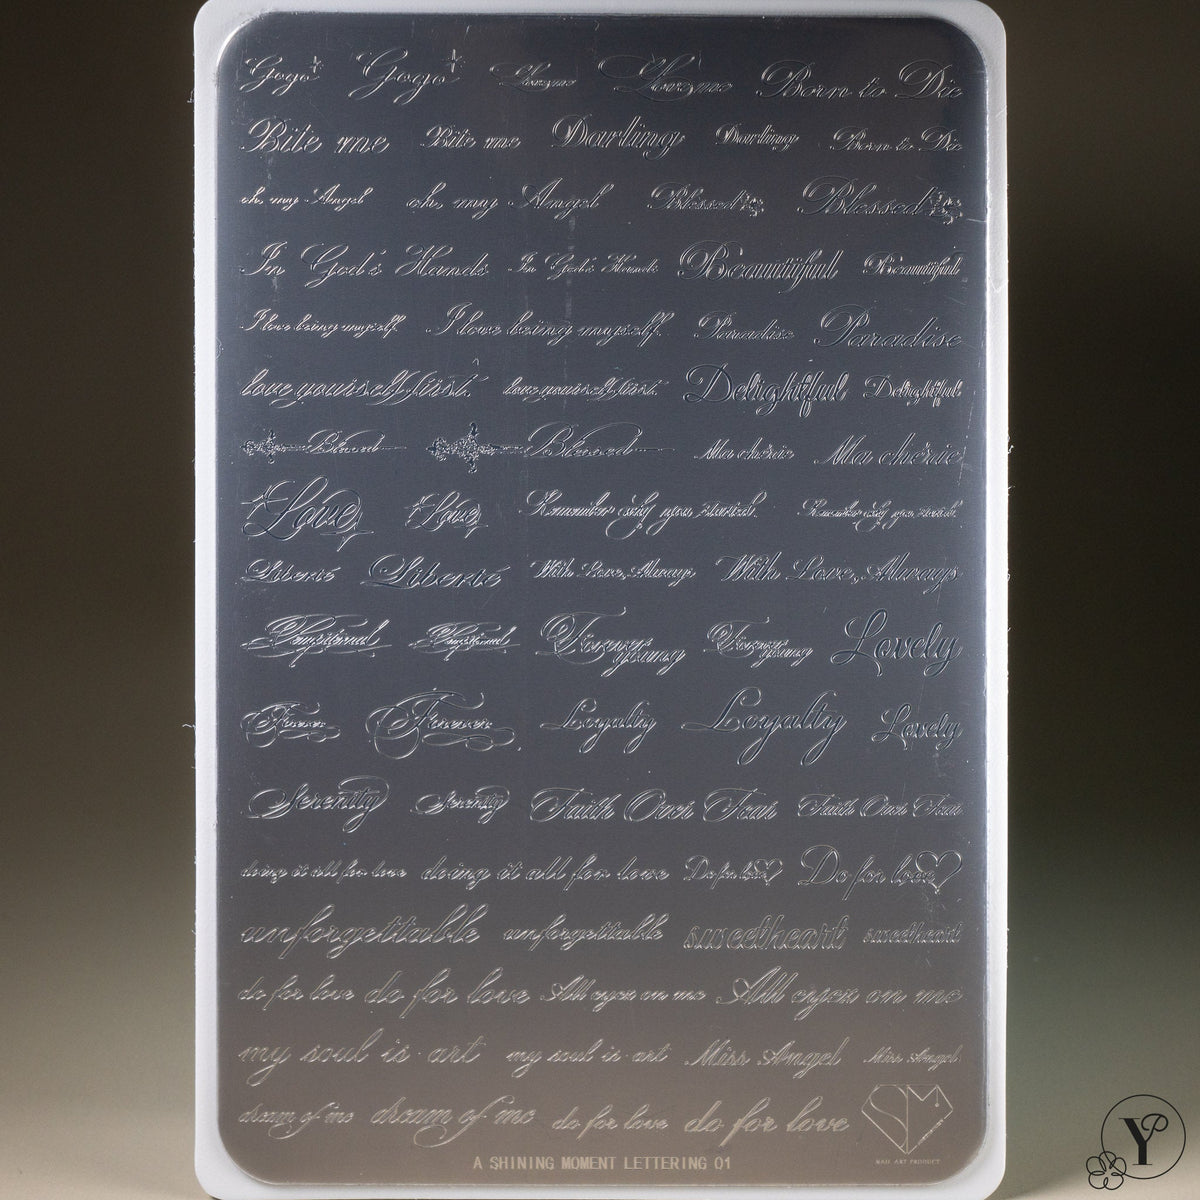 Gogo Gogo Love me Love me Born to Die
Bite me Bite me Darling Darling Born to Die
oh, my Angel oh, my Angel Blessed Blessed
In God's Hands In God's Hands Beautiful Beautiful
I love being myself. I love being myself. Paradise Paradise
love yourself first. love yourself first. Delightful Delightful
Blessed Blessed Ma chérie Ma chérie
Love Love Remember why you started. Remember why you started.
Liberté Liberté With Love, Always With Love, Always
Forever young Forever young Lovely
Forever Forever Loyalty Loyalty Lovely
Serenity Serenity Faith Over Fear Faith Over Fear
doing it all for love doing it all for love Do for love Do for love
unforgettable unforgettable sweetheart sweetheart
do for love do for love All eyez on me All eyez on me
my soul is art my soul is art Miss Angel Miss Angel
dream of me dream of me do for love do for love
SM
NAIL ART PRODUCT
A SHINING MOMENT LETTERING 01
YP